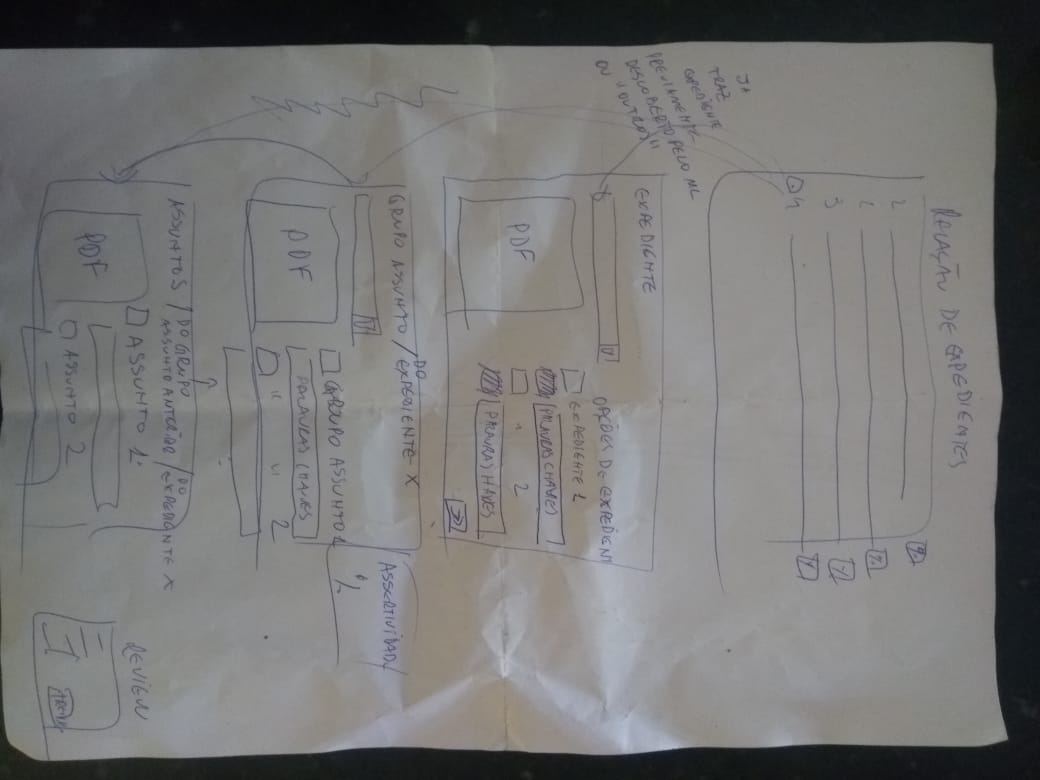 RELAÇÃO DE EXPEDIENTES
2
3
4
JÁ
TRAZ
EXPEDIENTE
PREVIAMENTE
DESCOBERTO PELO ML
OU "OUTROS"
EXPEDIENTE
PDF
OPÇÕES DE EXPEDIENT
EXPEDIENTE 1
PALAVRAS CHAVES
" 2
PALAVRAS HAVES
GRUPO ASSUNTO / DO EXPEDIENTE X
PDF
GRUPO ASSUNTO 1
PALAVRAS CHAVES
" " 2
ASSERTIVIDADE
%
ASSUNTOS / DO GRUPO ASSUNTO ANTERIOR / DO EXPEDIENTE X
PDF
ASSUNTO 1
ASSUNTO 2
REVIEW